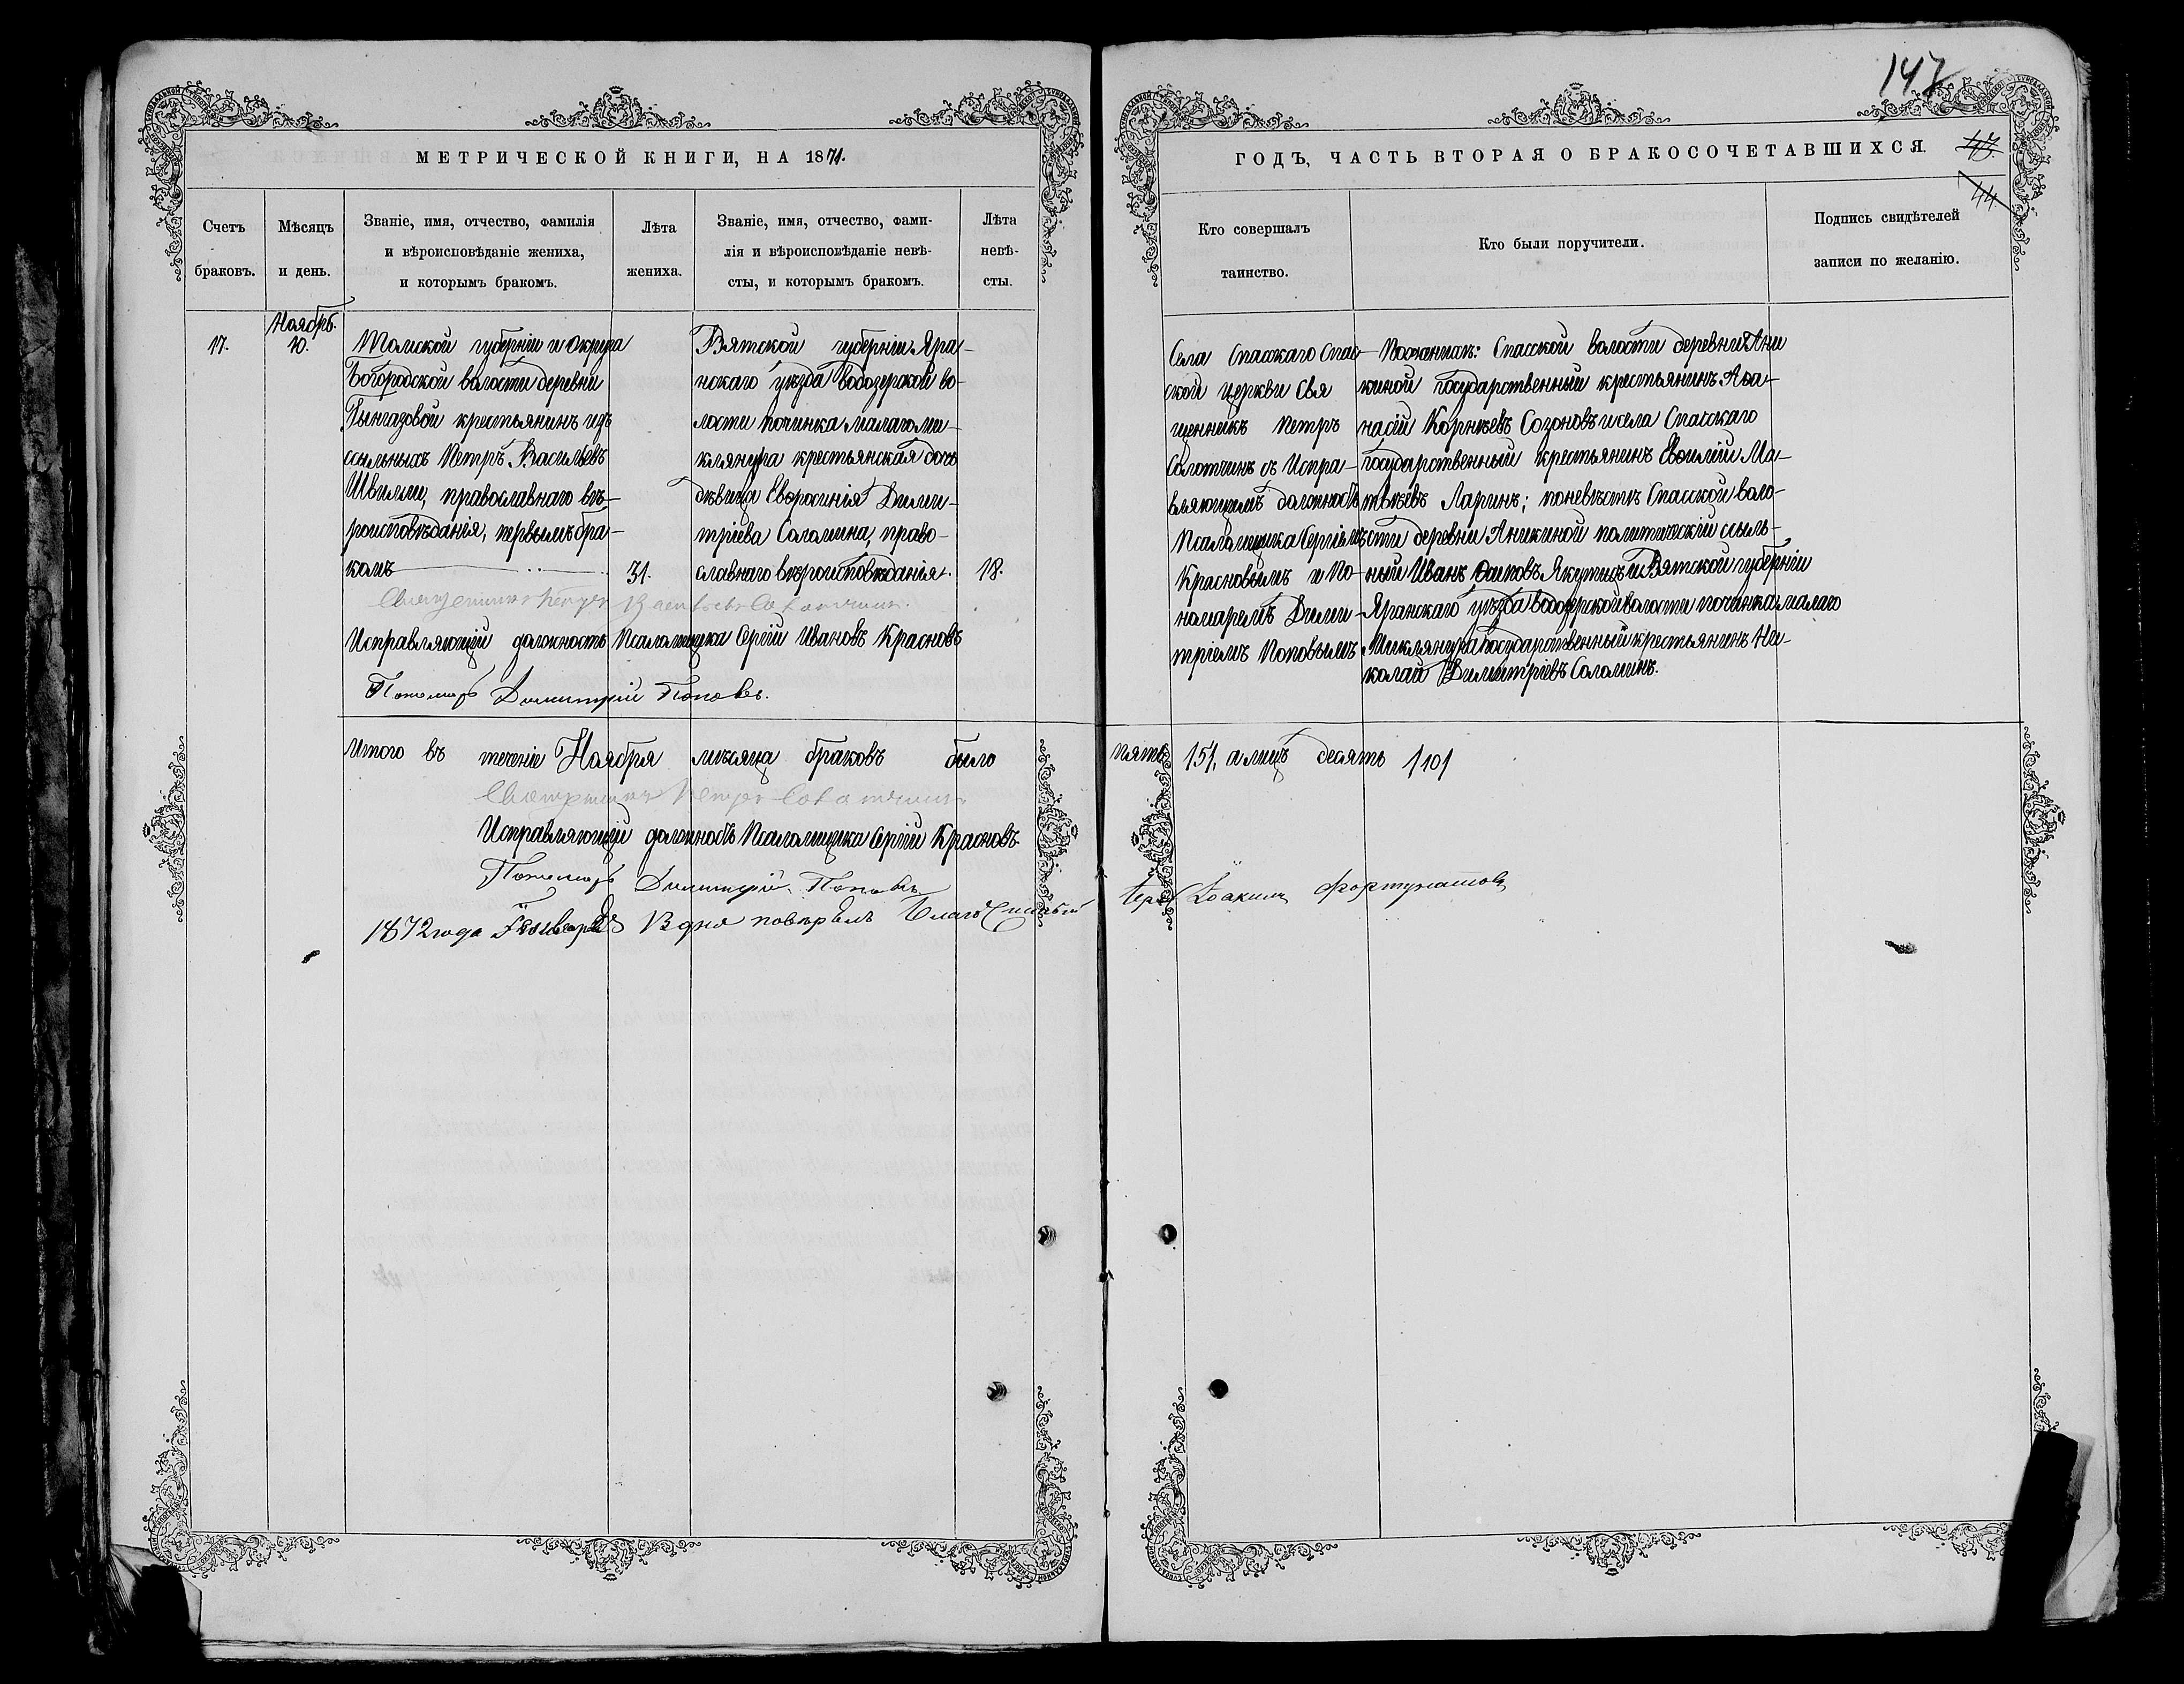 147
МЕТРИЧЕСКОЙ КНИГИ, НА 1871.
ГОДЪ, ЧАСТЬ ВТОРАЯ О БРАКОСОЧЕТАВШИХСЯ.
44
Счетъ браковъ.
Мѣсяцъ и день.
Званіе, имя, отчество, фамилія
и вѣроисповѣданіе жениха,
и которымъ бракомъ.
Лѣта жениха.
Званіе, имя, отчество, фами-
лія и вѣроисповѣданіе невѣ-
сты, и которымъ бракомъ.
Лѣта невѣ-
сты.
Кто совершалъ
таинство.
Кто были поручители.
Подпись свидѣтелей
записи по желанію.
17.
Ноябрь.
10.
Томской губерніи и Округа
Богородской волости деревни
крестьянинъ изъ
ссыльныхъ Петръ Васильевъ
православнаго вѣ-
роисповѣданія, первымъ бра-
комъ
31.
Вятской губерніи Яра-
нскаго уѣзда Водозерской во-
лости починка малаго Ми-
клянура крестьянская дочь
дѣвица Евфросинія Дими-
тріева Соломина, право-
славнаго вѣроисповѣданія.
18.
Священникъ Петръ Васильевъ Солотчинъ.
Исправляющій должность Псаломщика Сергій Ивановъ Красновъ
Пономарь Димитрій Поповъ.
Села Спасскаго Спас-
ской церкви Свя
щенникъ Петръ
Солотчинъ съ Испра-
вляющимъ должность
Псаломщика Сергіемъ
Красновымъ и По-
номаремъ Дими-
тріемъ Поповымъ
По женихѣ: Спасской волости деревни Ани
киной государственный крестьянинъ Аѳа-
насій Корнѣевъ Созоновъ и села Спасскаго
государственный крестьянинъ Ма-
твѣевъ Ларинъ; по невѣстѣ Спасской воло-
сти деревни Аникиной политическій ссыль-
ный Иванъ Осиповъ и Вятской губерніи
Яранскаго уѣзда Водозерской волости починка малаго
Миклянура государственный крестьянинъ Ни-
колай Димитріевъ Соломинъ.
Итого въ теченіе Ноября мѣсяца браковъ было пять /5/, а лицъ десять /10/
Священникъ Петръ Солотчинъ
Исправляющій должность Псаломщика Сергій Красновъ
Пономарь Димитрій Поповъ
1872 года Генваря дня повѣрялъ Благочинный Іерей Іоакимъ Фортунатовъ